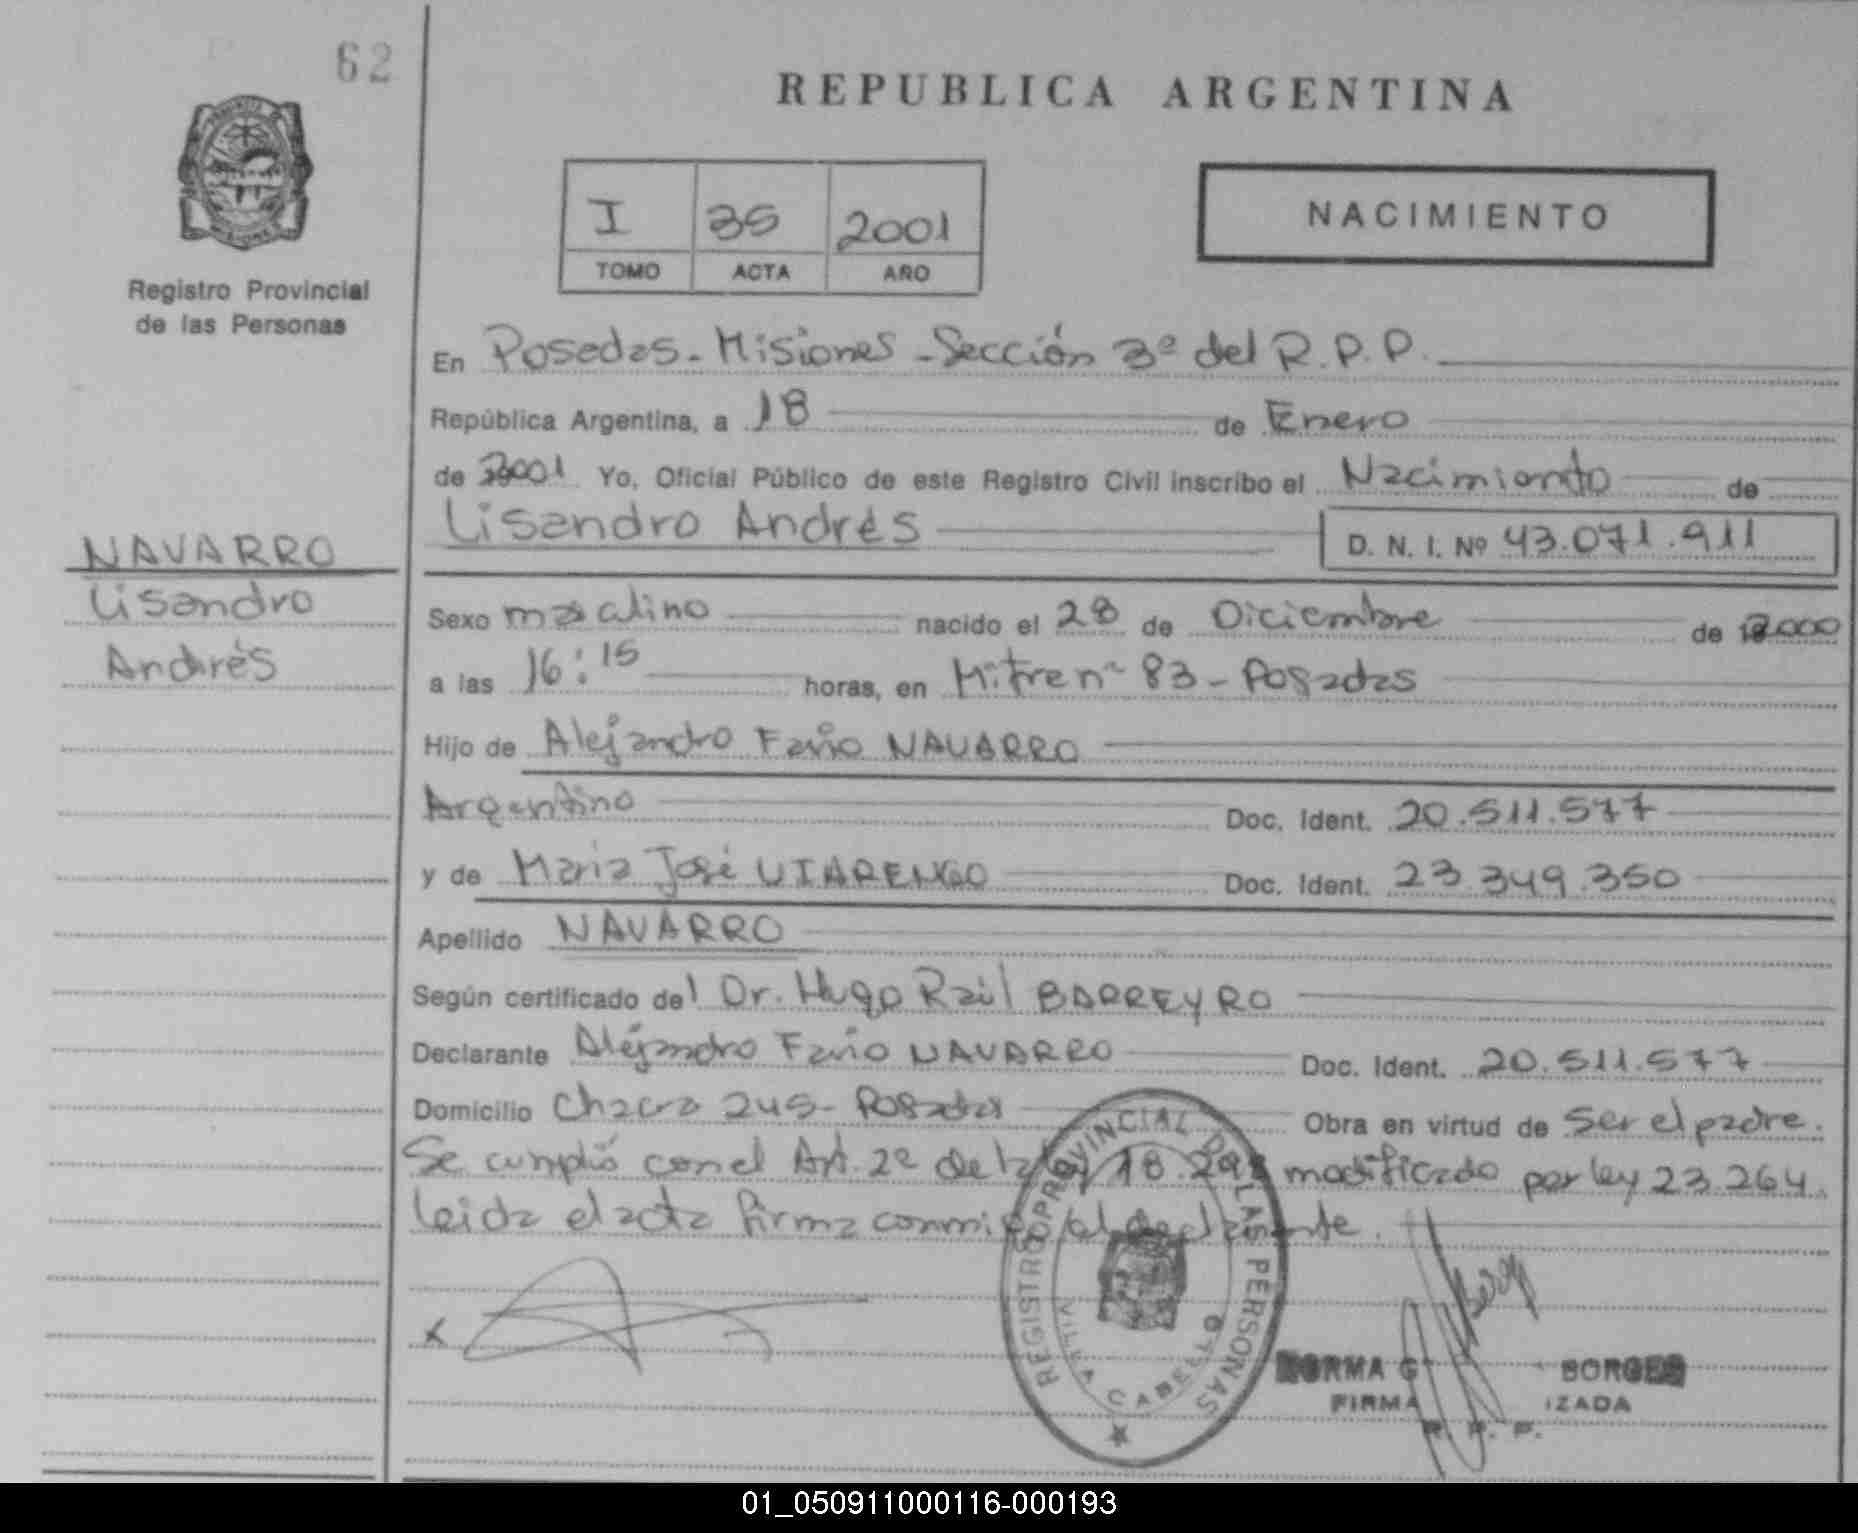 62
REPUBLICA ARGENTINA
I 35 2001
TOMO ACTA AÑO
NACIMIENTO
Registro Provincial
de las Personas
En Posadas - Misiones - Sección 3ª del R.P.P.
República Argentina, a 18 de Enero
de 2001 Yo, Oficial Público de este Registro Civil inscribo el Nacimiento de
Lisandro Andrés D. N. I. Nº 43.071.911
NAVARRO
Lisandro
Andrés
Sexo masculino nacido el 28 de Diciembre de 2000
a las 16:15 horas, en Mitre nº 83 - Posadas
Hijo de Alejandro Favio NAVARRO
Argentino Doc. Ident. 20.511.577
y de Maria José VIARENGO Doc. Ident. 23.349.350
Apellido NAVARRO
Según certificado del Dr. Hugo Raúl BARREYRO
Declarante Alejandro Favio NAVARRO Doc. Ident. 20.511.577
Domicilio Chacra 245 - Posadas Obra en virtud de ser el padre.
Se cumplió con el Art. 2º de la ley 18.248 modificado por ley 23.264.
leida el acta firma conmigo el declarante.
REGISTRO PROVINCIAL DE LAS PERSONAS
VILLA CABELLO
NORMA G BORGES
FIRMA IZADA
R. P. P.
01_050911000116-000193